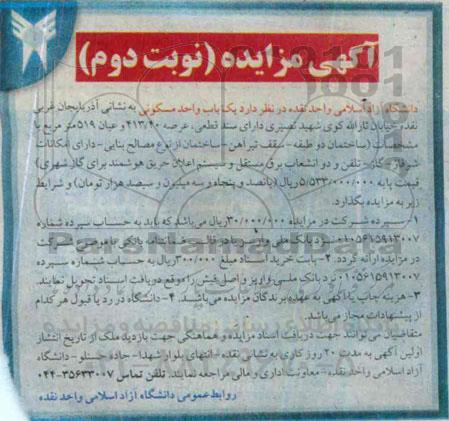 آگهی مزایده (نوبت دوم)
دانشگاه آزاد اسلامی واحد نقده در نظر دارد یک باب واحد مسکونی به نشانی آذربایجان غربی
نقده خیابان ثارالله کوی شهید نصیری دارای سند قطعی، عرصه ۴۱۳/۴۰ و عیان ۵۱۹ متر مربع با
مشخصات (ساختمان دو طبقه - سقف تیرآهن - ساختمان از نوع مصالح بنایی - دارای امکانات
شوفاژ - گاز - تلفن و دو انشعاب برق مستقل و سیستم اعلان حریق هوشمند برای گاز شهری)
قیمت پایه ۵/۵۳۳/۰۰۰/۰۰۰ ریال (پانصد و پنجاه و سه میلیون و سیصد هزار تومان) و شرایط
زیر به مزایده بگذارد.
۱- سپرده شرکت در مزایده ۳۰/۰۰۰/۰۰۰ ریال می باشد که باید به حساب سپرده شماره
۰۱۰۵۶۱۵۹۱۳۰۰۷ نزد بانک ملی واریز و یا در قالب ضمانتنامه بانکی با موضوع شرکت
در مزایده ارائه گردد. ۲- بابت خرید اسناد مبلغ ۳۰۰/۰۰۰ ریال به حساب شماره سپرده
۰۱۰۵۶۱۵۹۱۳۰۰۷ نزد بانک ملی واریز و اصل فیش را موقع دریافت اسناد تحویل نمایند.
۳- هزینه چاپ آگهی به عهده برندگان مزایده می باشد. ۴- دانشگاه در رد یا قبول هر کدام
از پیشنهادات مجاز می باشد.
متقاضیان می توانند جهت دریافت اسناد مزایده و هماهنگی جهت بازدید ملک از تاریخ انتشار
اولین آگهی به مدت ۲۰ روز کاری به نشانی نقده - انتهای بلوار شهدا - جاده حسنلو - دانشگاه
آزاد اسلامی واحد نقده - معاونت اداری و مالی مراجعه نمایند. تلفن تماس ۳۵۶۳۳۰۰۷-۰۴۴
روابط عمومی دانشگاه آزاد اسلامی واحد نقده